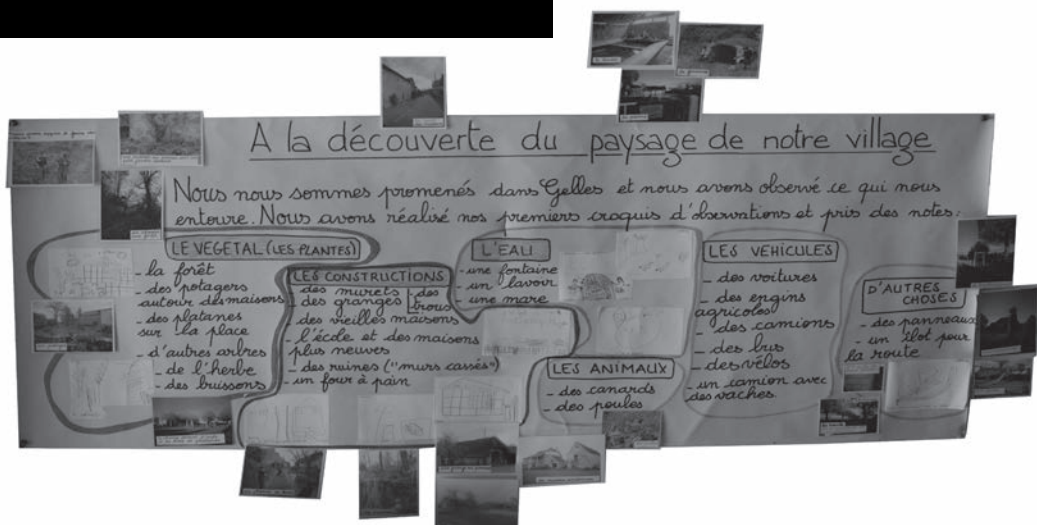 A la découverte du paysage de notre village
Nous nous sommes promenés dans Gelles et nous avons observé ce qui nous
entoure. Nous avons réalisé nos premiers croquis d'observations et pris des notes:
LE VEGETAL (LES PLANTES)
- la forêt
- des potagers
autour des maisons
- des platanes
sur la place
- d'autres arbres
- de l'herbe
- des buissons
LES CONSTRUCTIONS
- des murets
- des granges
- des
trous
- des vieilles maisons
- l'école et des maisons
plus neuves
- des ruines ("murs cassés")
- un four à pain
L'EAU
- une fontaine
- un lavoir
- une mare
LES ANIMAUX
- des canards
- des poules
LES VEHICULES
- des voitures
- des engins
agricoles
- des camions
- des bus
- des vélos
- un camion avec
des vaches.
D'AUTRES
CHOSES
- des panneaux
- un îlot pour
la route